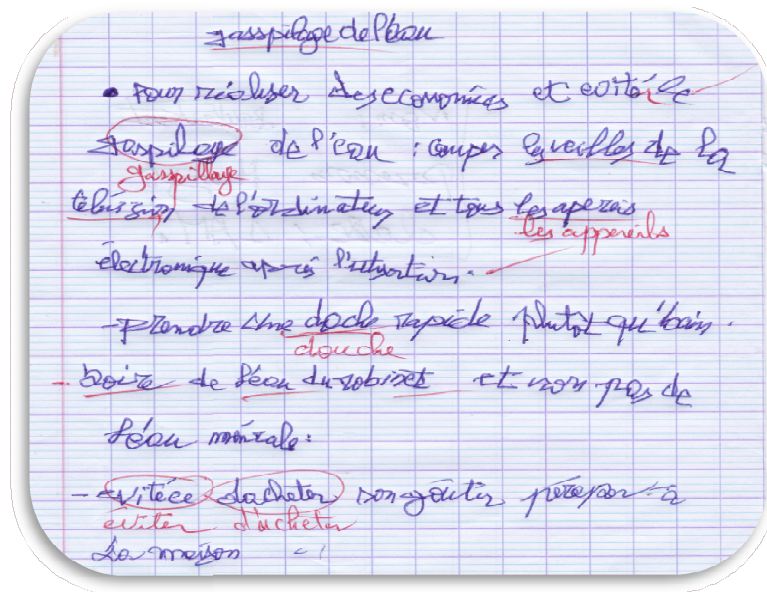 gasspilage de l'eau
• Pour réaliser des economies et evitér le
gaspilage de l'éau : couper les veilles de la
gasspillage
télivizion de l'ordinateur et tous les apereis
les appereils
électronique après l'utisation.
-prendre une doche rapide plutôt qu'bain.
douche
- boire de l'éau du robinet et non pas de
l'éau minérale:
- evitéer dacheter son goûter
éviter d'acheter
La maison